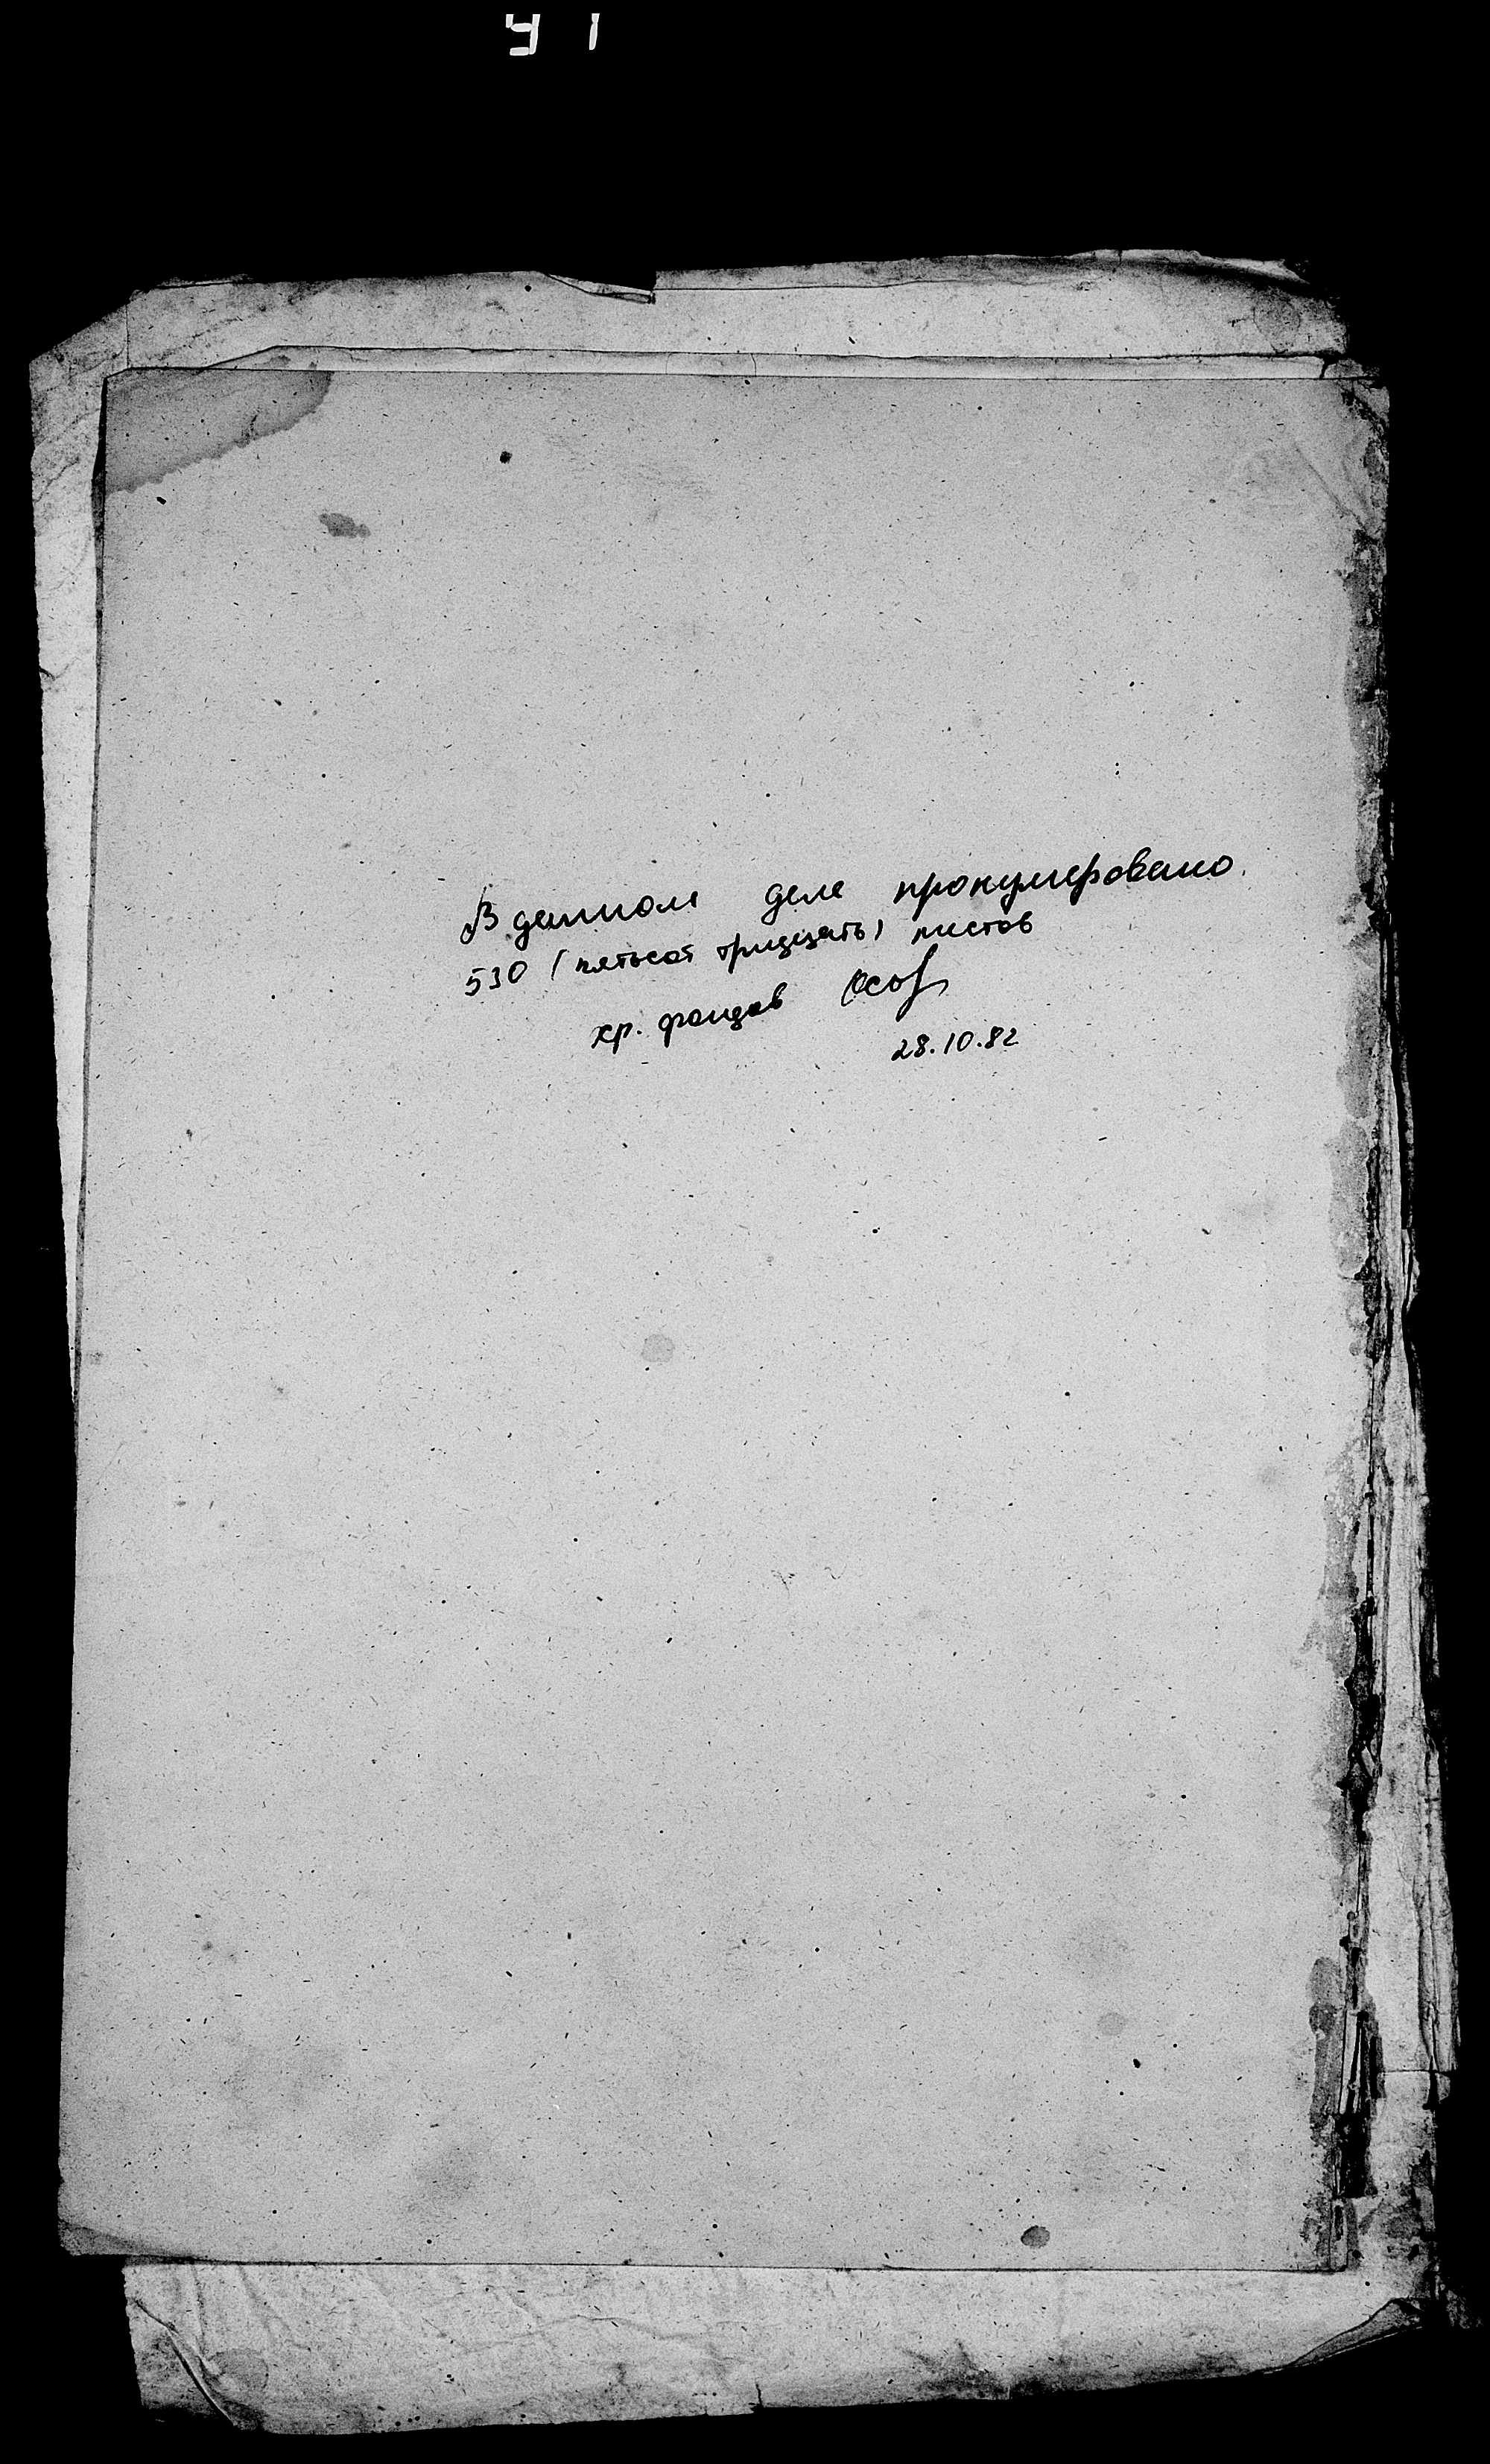 В данном деле пронумеровано
530 (пятьсот тридцать) листов
хр. фондов
28.10.82